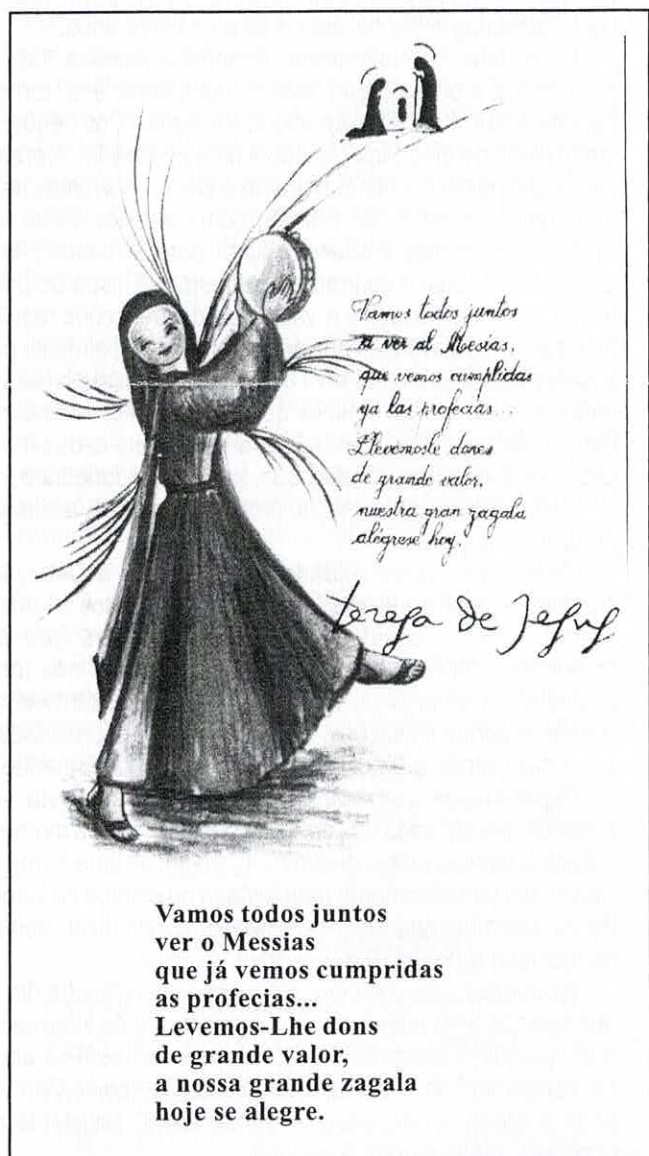 Vamos todos juntos
a ver al Mesías,
que vemos cumplidas
ya las profecías...
Llevémosle dones
de grande valor,
nuestra gran zagala
alégrese hoy.
teresa de Jesus
Vamos todos juntos
ver o Messias
que já vemos cumpridas
as profecias...
Levemos-Lhe dons
de grande valor,
a nossa grande zagala
hoje se alegre.